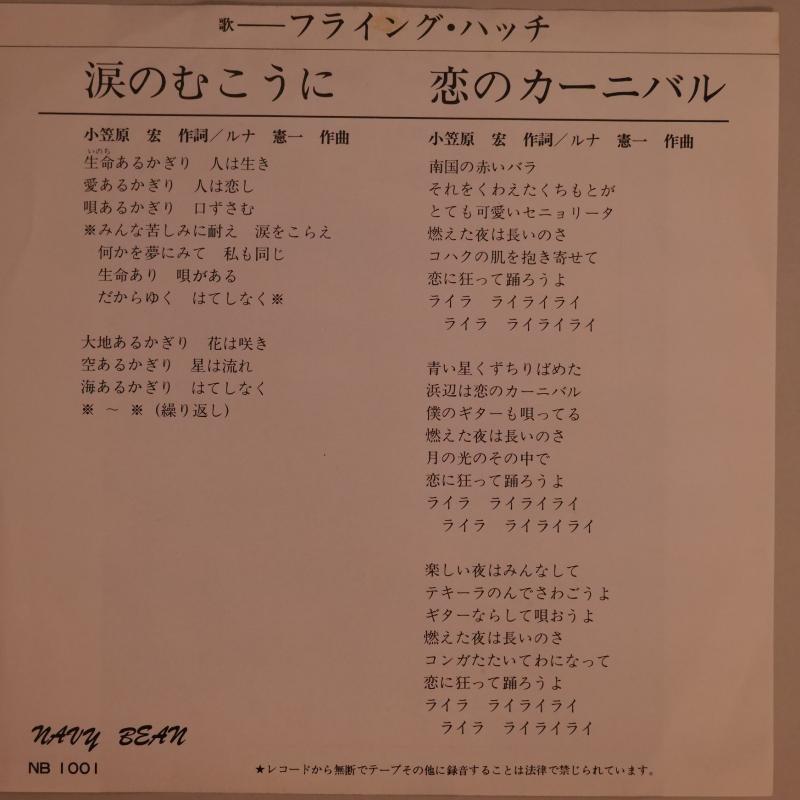 歌――フライング・ハッチ
涙のむこうに
小笠原　宏　作詞／ルナ　憲一　作曲
いのち
生命あるかぎり　人は生き
愛あるかぎり　人は恋し
唄あるかぎり　口ずさむ
※みんな苦しみに耐え　涙をこらえ
何かを夢にみて　私も同じ
生命あり　唄がある
だからゆく　はてしなく※
大地あるかぎり　花は咲き
空あるかぎり　星は流れ
海あるかぎり　はてしなく
※ ～ ※（繰り返し）
恋のカーニバル
小笠原　宏　作詞／ルナ　憲一　作曲
南国の赤いバラ
それをくわえたくちもとが
とても可愛いセニョリータ
燃えた夜は長いのさ
コハクの肌を抱き寄せて
恋に狂って踊ろうよ
ライラ　ライライライ
ライラ　ライライライ
青い星くずちりばめた
浜辺は恋のカーニバル
僕のギターも唄ってる
燃えた夜は長いのさ
月の光のその中で
恋に狂って踊ろうよ
ライラ　ライライライ
ライラ　ライライライ
楽しい夜はみんなして
テキーラのんでさわごうよ
ギターならして唄おうよ
燃えた夜は長いのさ
コンガたたいてわになって
恋に狂って踊ろうよ
ライラ　ライライライ
ライラ　ライライライ
NAVY BEAN
NB 1001
★レコードから無断でテープその他に録音することは法律で禁じられています。